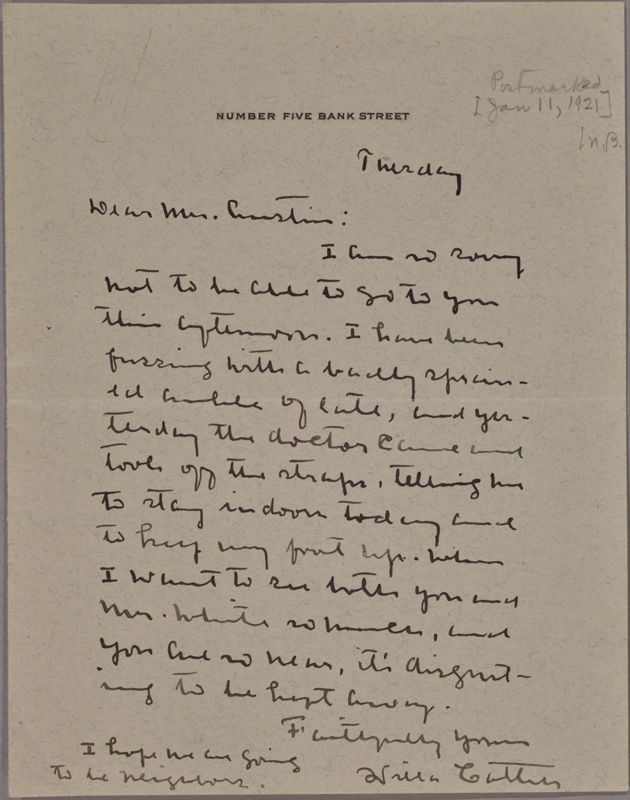 Postmarked
[Jan 11, 1921]
[N.B.
NUMBER FIVE BANK STREET
Tuesday
Dear Mrs. Austin:
I am so sorry
not to be able to go to you
this afternoon. I have been
fussing with a badly sprain-
ed ankle of late, and yes-
terday the doctor came and
took off the straps, telling me
to stay indoors today and
to keep my foot up. When
I want to see both you and
Mrs. White so much, and
you are so near, it's disgust-
ing to be kept away.
Faithfully yours
Willa Cather
I hope we are going
to be neighbors.